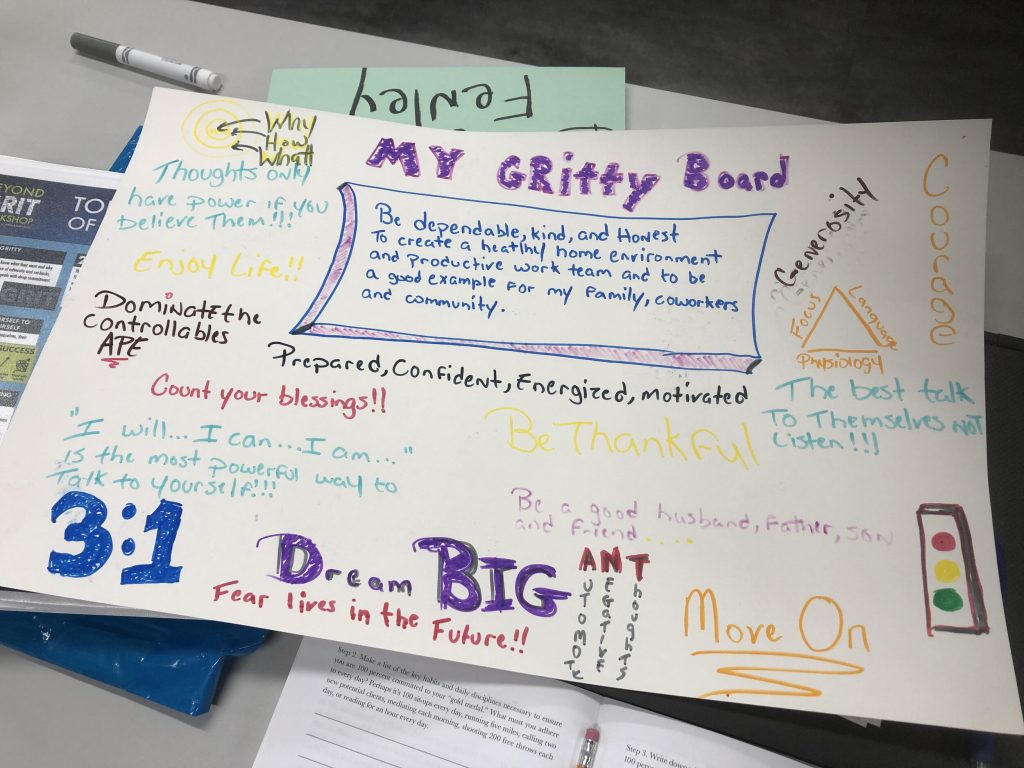 Fenley
Why
How
What
MY GRitty Board
Thoughts only
have power if you
believe Them!!!
Enjoy Life!!
Dominate the
controllables
APE
Be dependable, kind, and Honest
To create a heatlhy home environment
and productive work team and to be
a good example for my family, coworkers
and community.
Generosity
Courage
Focus
Language
Physiology
Prepared, Confident, Energized, motivated
The best talk
To Themselves NOT
Listen!!!
Count your blessings!!
Be Thankful
"I will...I can...I am..."
is the most powerful way to
Talk to yourself!!!
3:1
Be a good husband, Father, SON
and friend.....
Dream BIG
Fear lives in the Future!!
ANT
NEGATIVE
Thoughts
Move On
EYOND
RIT
KSHOP
TO
OF
GRITTY
SUCCESS
Step 2. Make a list of the key habits and daily disciplines necessary to ensure
you are 100 percent committed to your "gold medal." What must you adhere
to every day? Perhaps it's 100 sit-ups every day, running five miles, calling two
new potential clients, mediating each morning, shooting 200 free throws each
day, or reading for an hour every day.
Step 3. Write down